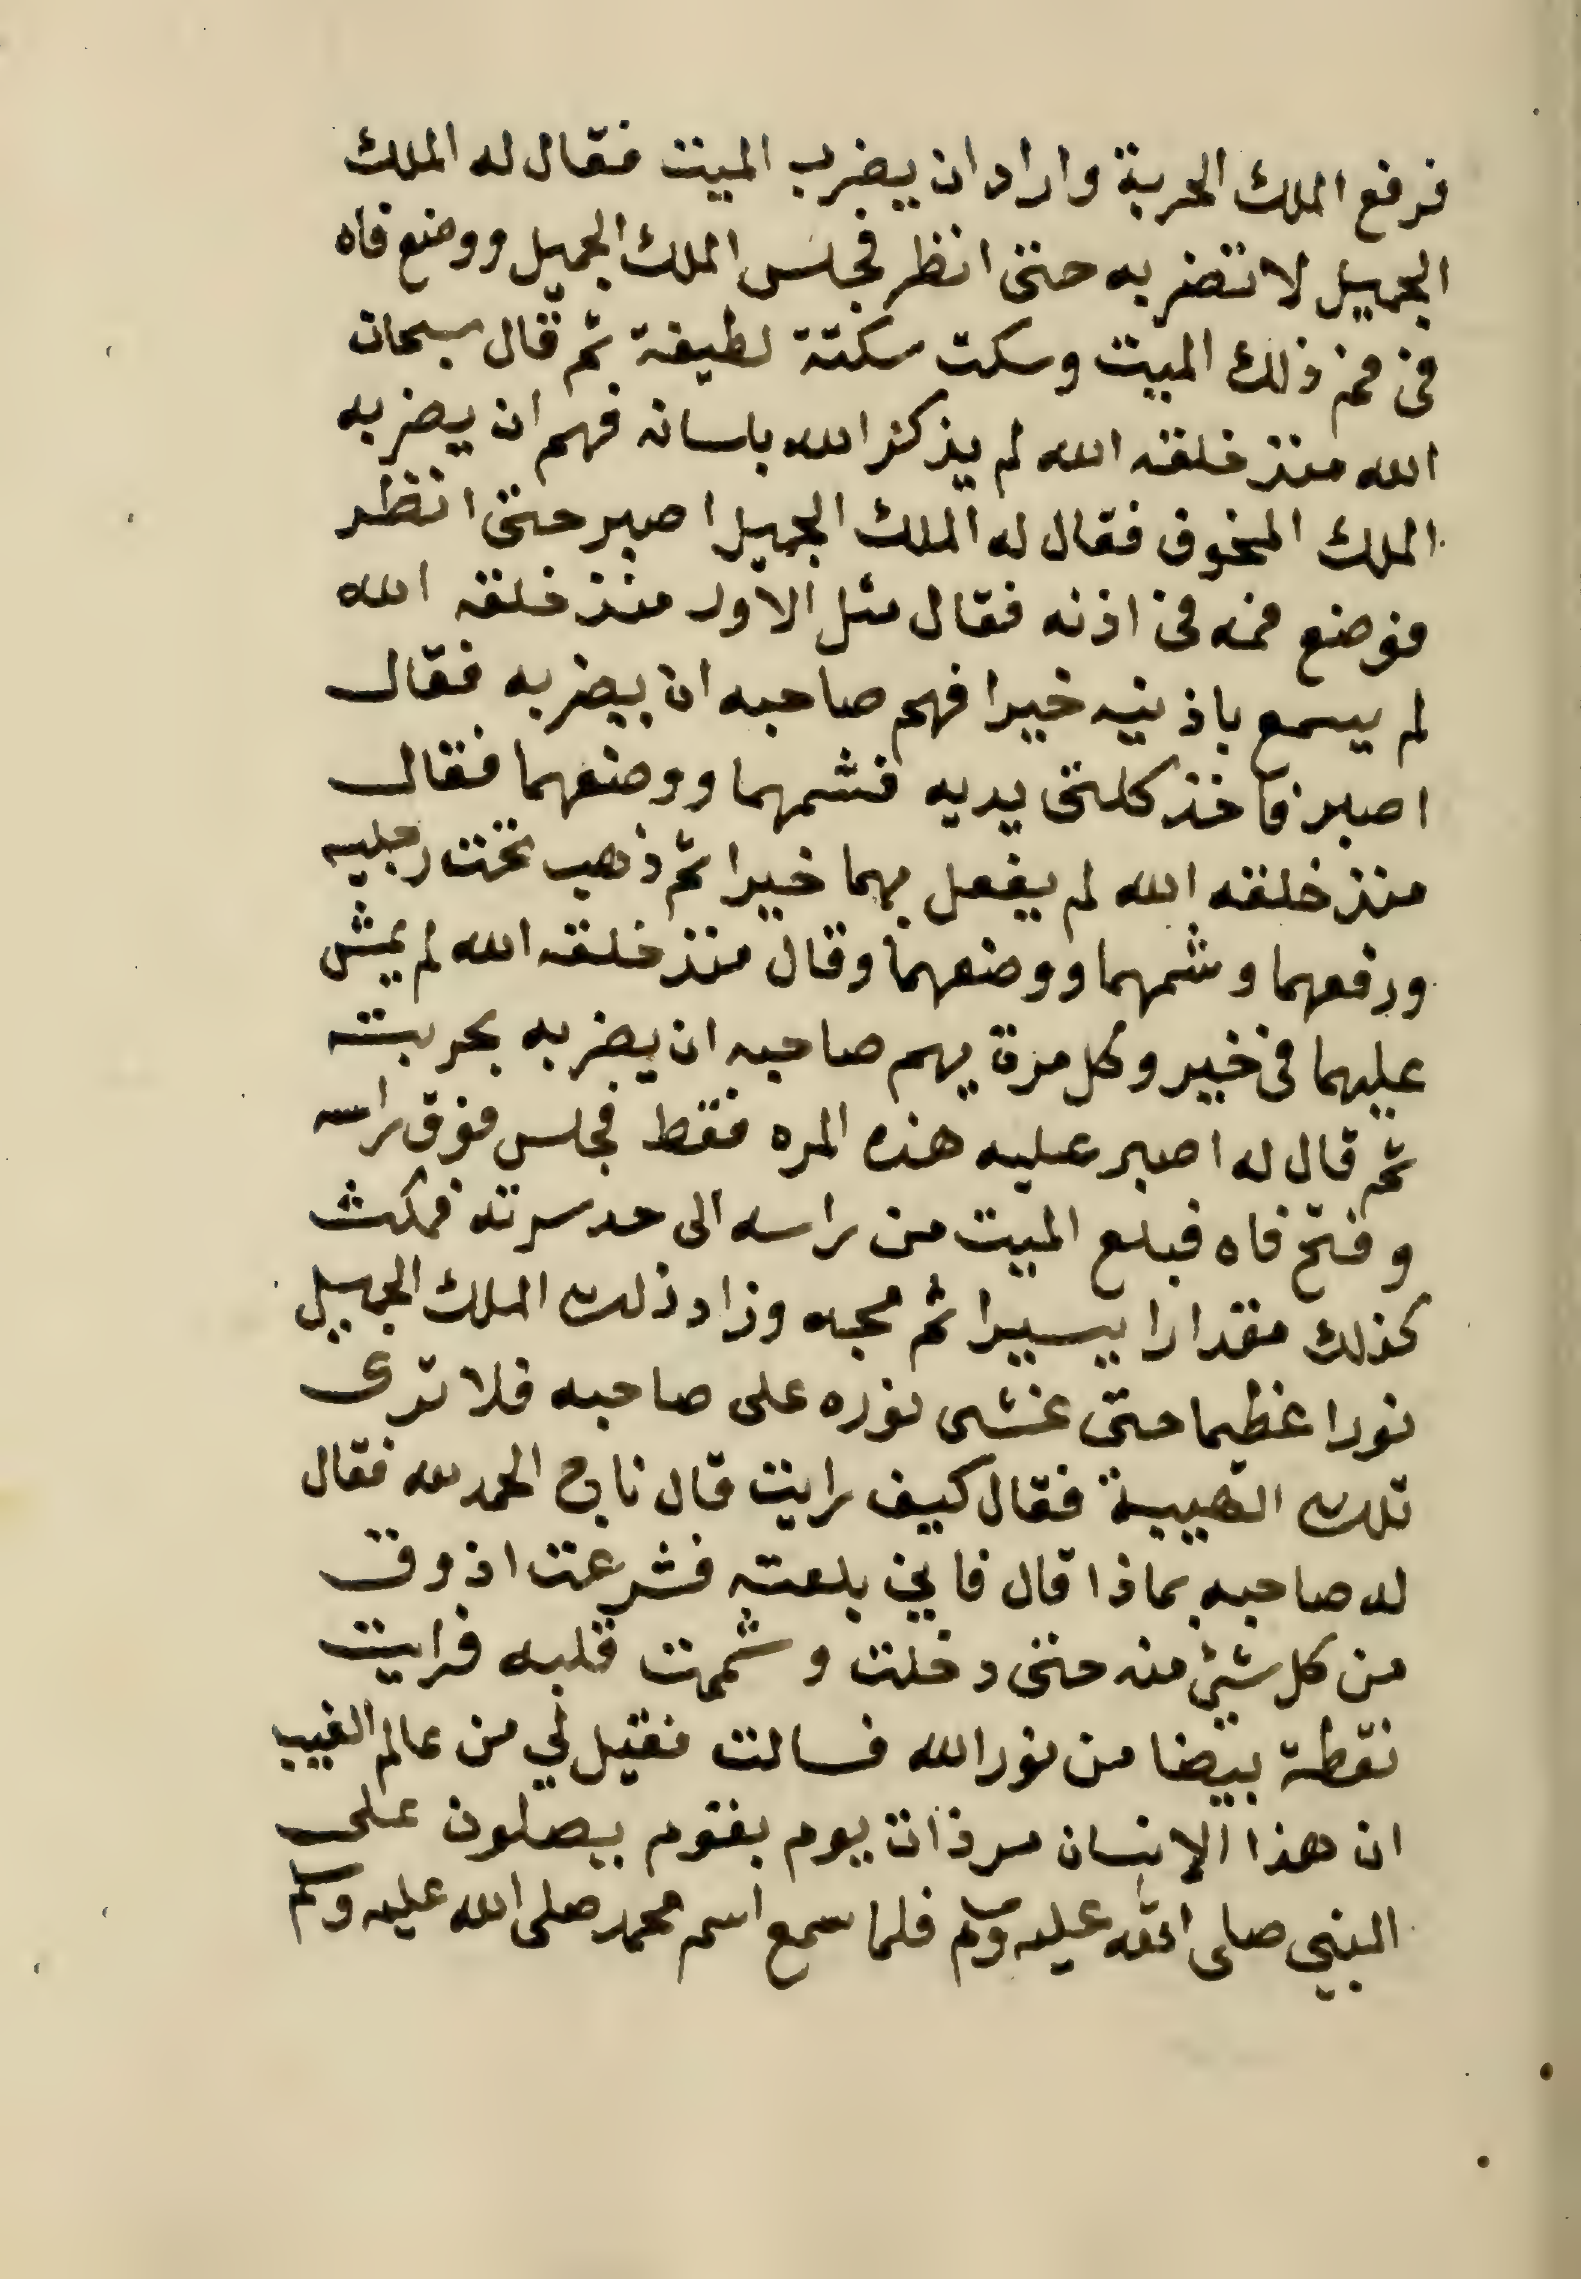 فرفع الملك الحربة واراد ان يضرب الميت فقال له الملك
الجميل لا تضربه حتى انظر فجلس الملك الجميل ووضع فاه
في فم ذلك الميت وسكت سكتة لطيفة ثم قال سبحان
الله منذ خلقه الله لم يذكر الله بلسانه فهم ان يضربه
الملك المخوف فقال له الملك الجميل اصبر حتى انظر
فوضع فمه في اذنه فقال مثل الاول منذ خلقه الله
لم يسمع باذنيه خيرا فهم صاحبه ان يضربه فقال
اصبر فاخذ كلتى يديه فشمهما ووضعهما فقال
منذ خلقه الله لم يفعل بهما خيرا ثم ذهب تحت رجليه
ورفعهما وشمهما ووضعهما وقال منذ خلقه الله لم يمش
عليهما في خير وكل مرة يهم صاحبه ان يضربه بحربته
ثم قال له اصبر عليه هذه المره فقط فجلس فوق راسه
وفتح فاه فبلع الميت من راسه الى حد سرته فمكث
كذلك مقدارا يسيرا ثم مجه وزاد ذلك الملك الجميل
نورا عظيما حتى غشى نوره على صاحبه فلا ترى
تلك الهيبة فقال كيف رايت قال ناج الحمد لله فقال
له صاحبه بماذا قال فاني بلعته فشرعت اذوق
من كل شئ منه حتى دخلت وشممت قلبه فرايت
نقطة بيضا من نور الله فسالت فقيل لي من عالم الغيب
ان هذا الانسان مر ذات يوم بقوم يصلون على
النبي صلى الله عليه وسلم فلما سمع اسم محمد صلى الله عليه وسلم